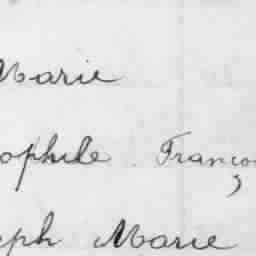 Marie
ophile Franço
eph Marie